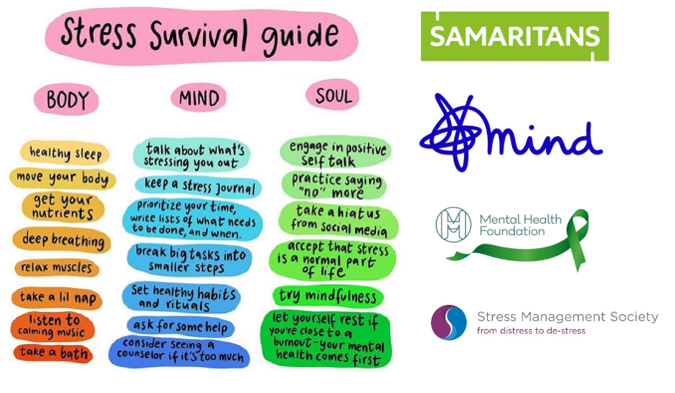 Stress Survival guide
BODY
healthy sleep
move your body
get your
nutrients
deep breathing
relax muscles
take a lil nap
listen to
calming music
take a bath
MIND
talk about what's
stressing you out
keep a stress journal
prioritize your time,
write lists of what needs
to be done, and when.
break big tasks into
smaller steps
set healthy habits
and rituals
ask for some help
consider seeing a
counselor if it's too much
SOUL
engage in positive
self talk
practice saying
"no" more
take a hiatus
from social media
accept that stress
is a normal part
of life
try mindfulness
let yourself rest if
you're close to a
burnout-your mental
health comes first
SAMARITANS
mind
Mental Health
Foundation
Stress Management Society
from distress to de-stress